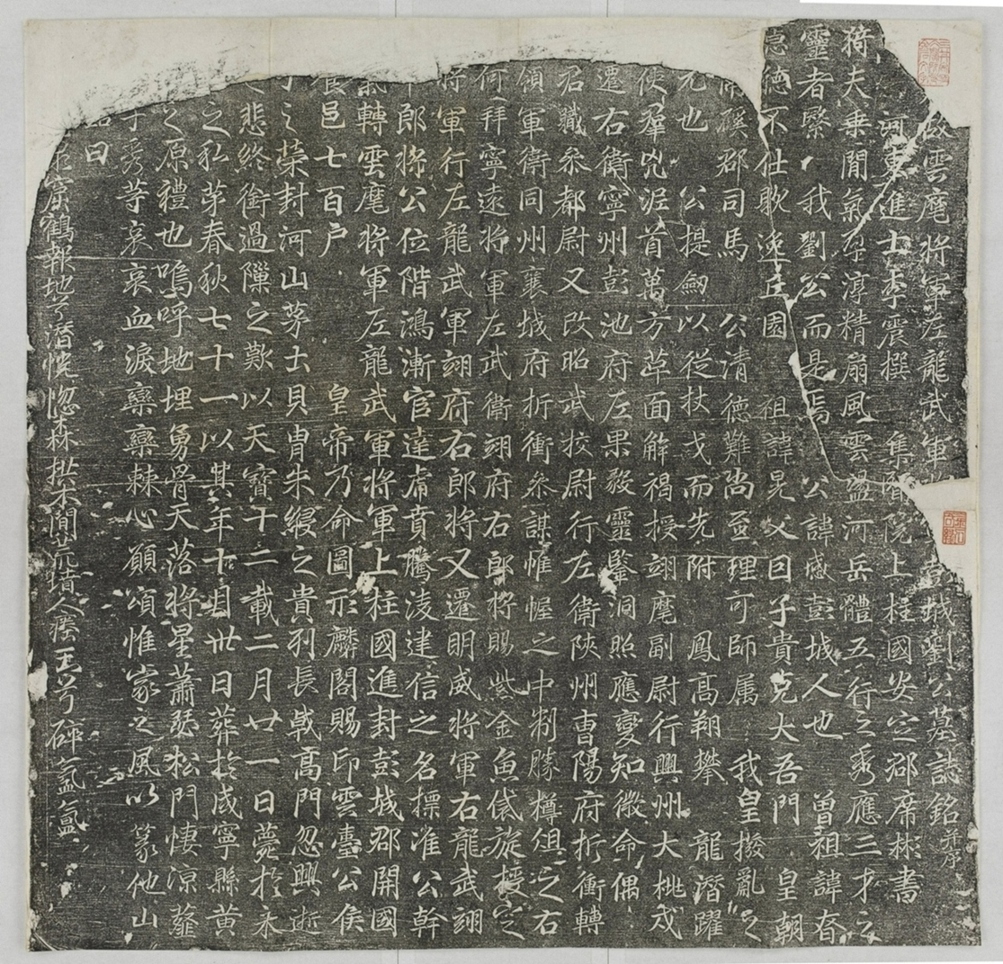 故雲麾將軍左龍武軍將彭城劉公墓誌銘并序
河東進士李震撰 集賢院上柱國安定郡席彬書
猗夫乗閒氣稟淳精扇風雲盪河岳體五行之秀應三才之
靈者繄我劉公而是焉 公諱感彭城人也 曾祖諱春
隐德不仕耿逸丘園 祖諱晃父曰子貴克大吾門 皇朝
磎郡司馬 公清德難尚亞理可師属 我皇撥亂之
元也 公提劎以從杖戈而先附鳳高翔攀龍潛躍
使羣兇泥首萬方革面解褐授翊麾副尉行興州大桃戍
遷右衛寧州彭池府左果毅靈鑒洞照應變知微命偶
召職叅都尉又改昭武挍尉行左衛陝州曹陽府折衝轉
領軍衛同州襄城府折衝叅謀帷幄之中制勝樽俎之右
何拜寧遠將軍左武衛翊府右郎將賜紫金魚袋旋授定
將軍行左龍武軍翊府右郎將又遷明威將軍右龍武翊
中郎將公位階鴻漸官達虎賁騰淩建信之名操准公幹
氣轉雲麾將軍左龍武軍將軍上柱國進封彭城郡開國
食邑七百户 皇帝乃命圖形麟閣賜印雲臺公侯
子之榮封河山茅土貝冑朱綬之貴列長戟高門忽興逝
之悲終銜過隟之歎以天寶十二載二月廿一日薨於来
之私苐春秋七十一以其年十月卅日葬於咸寧縣黄
之原禮也嗚呼地埋勇骨天落將星蕭瑟松門悽涼薤
子秀等哀哀血淚欒欒棘心願頌惟家之風以篆他山
銘曰
原鶴報地兮潛恍惚森拱木閒荒墳人瘞玉兮碎氤氳